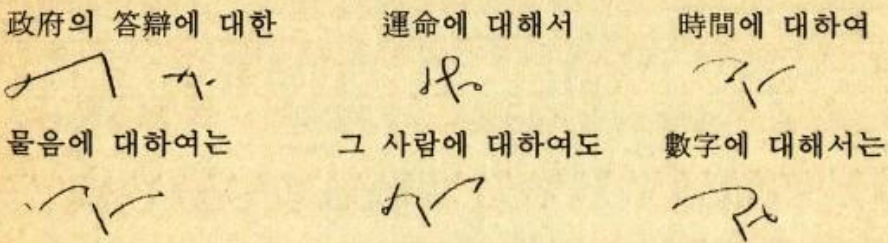 政府의 答辯에 대한 運命에 대해서 時間에 대하여
물음에 대하여는 그 사람에 대하여도 數字에 대해서는